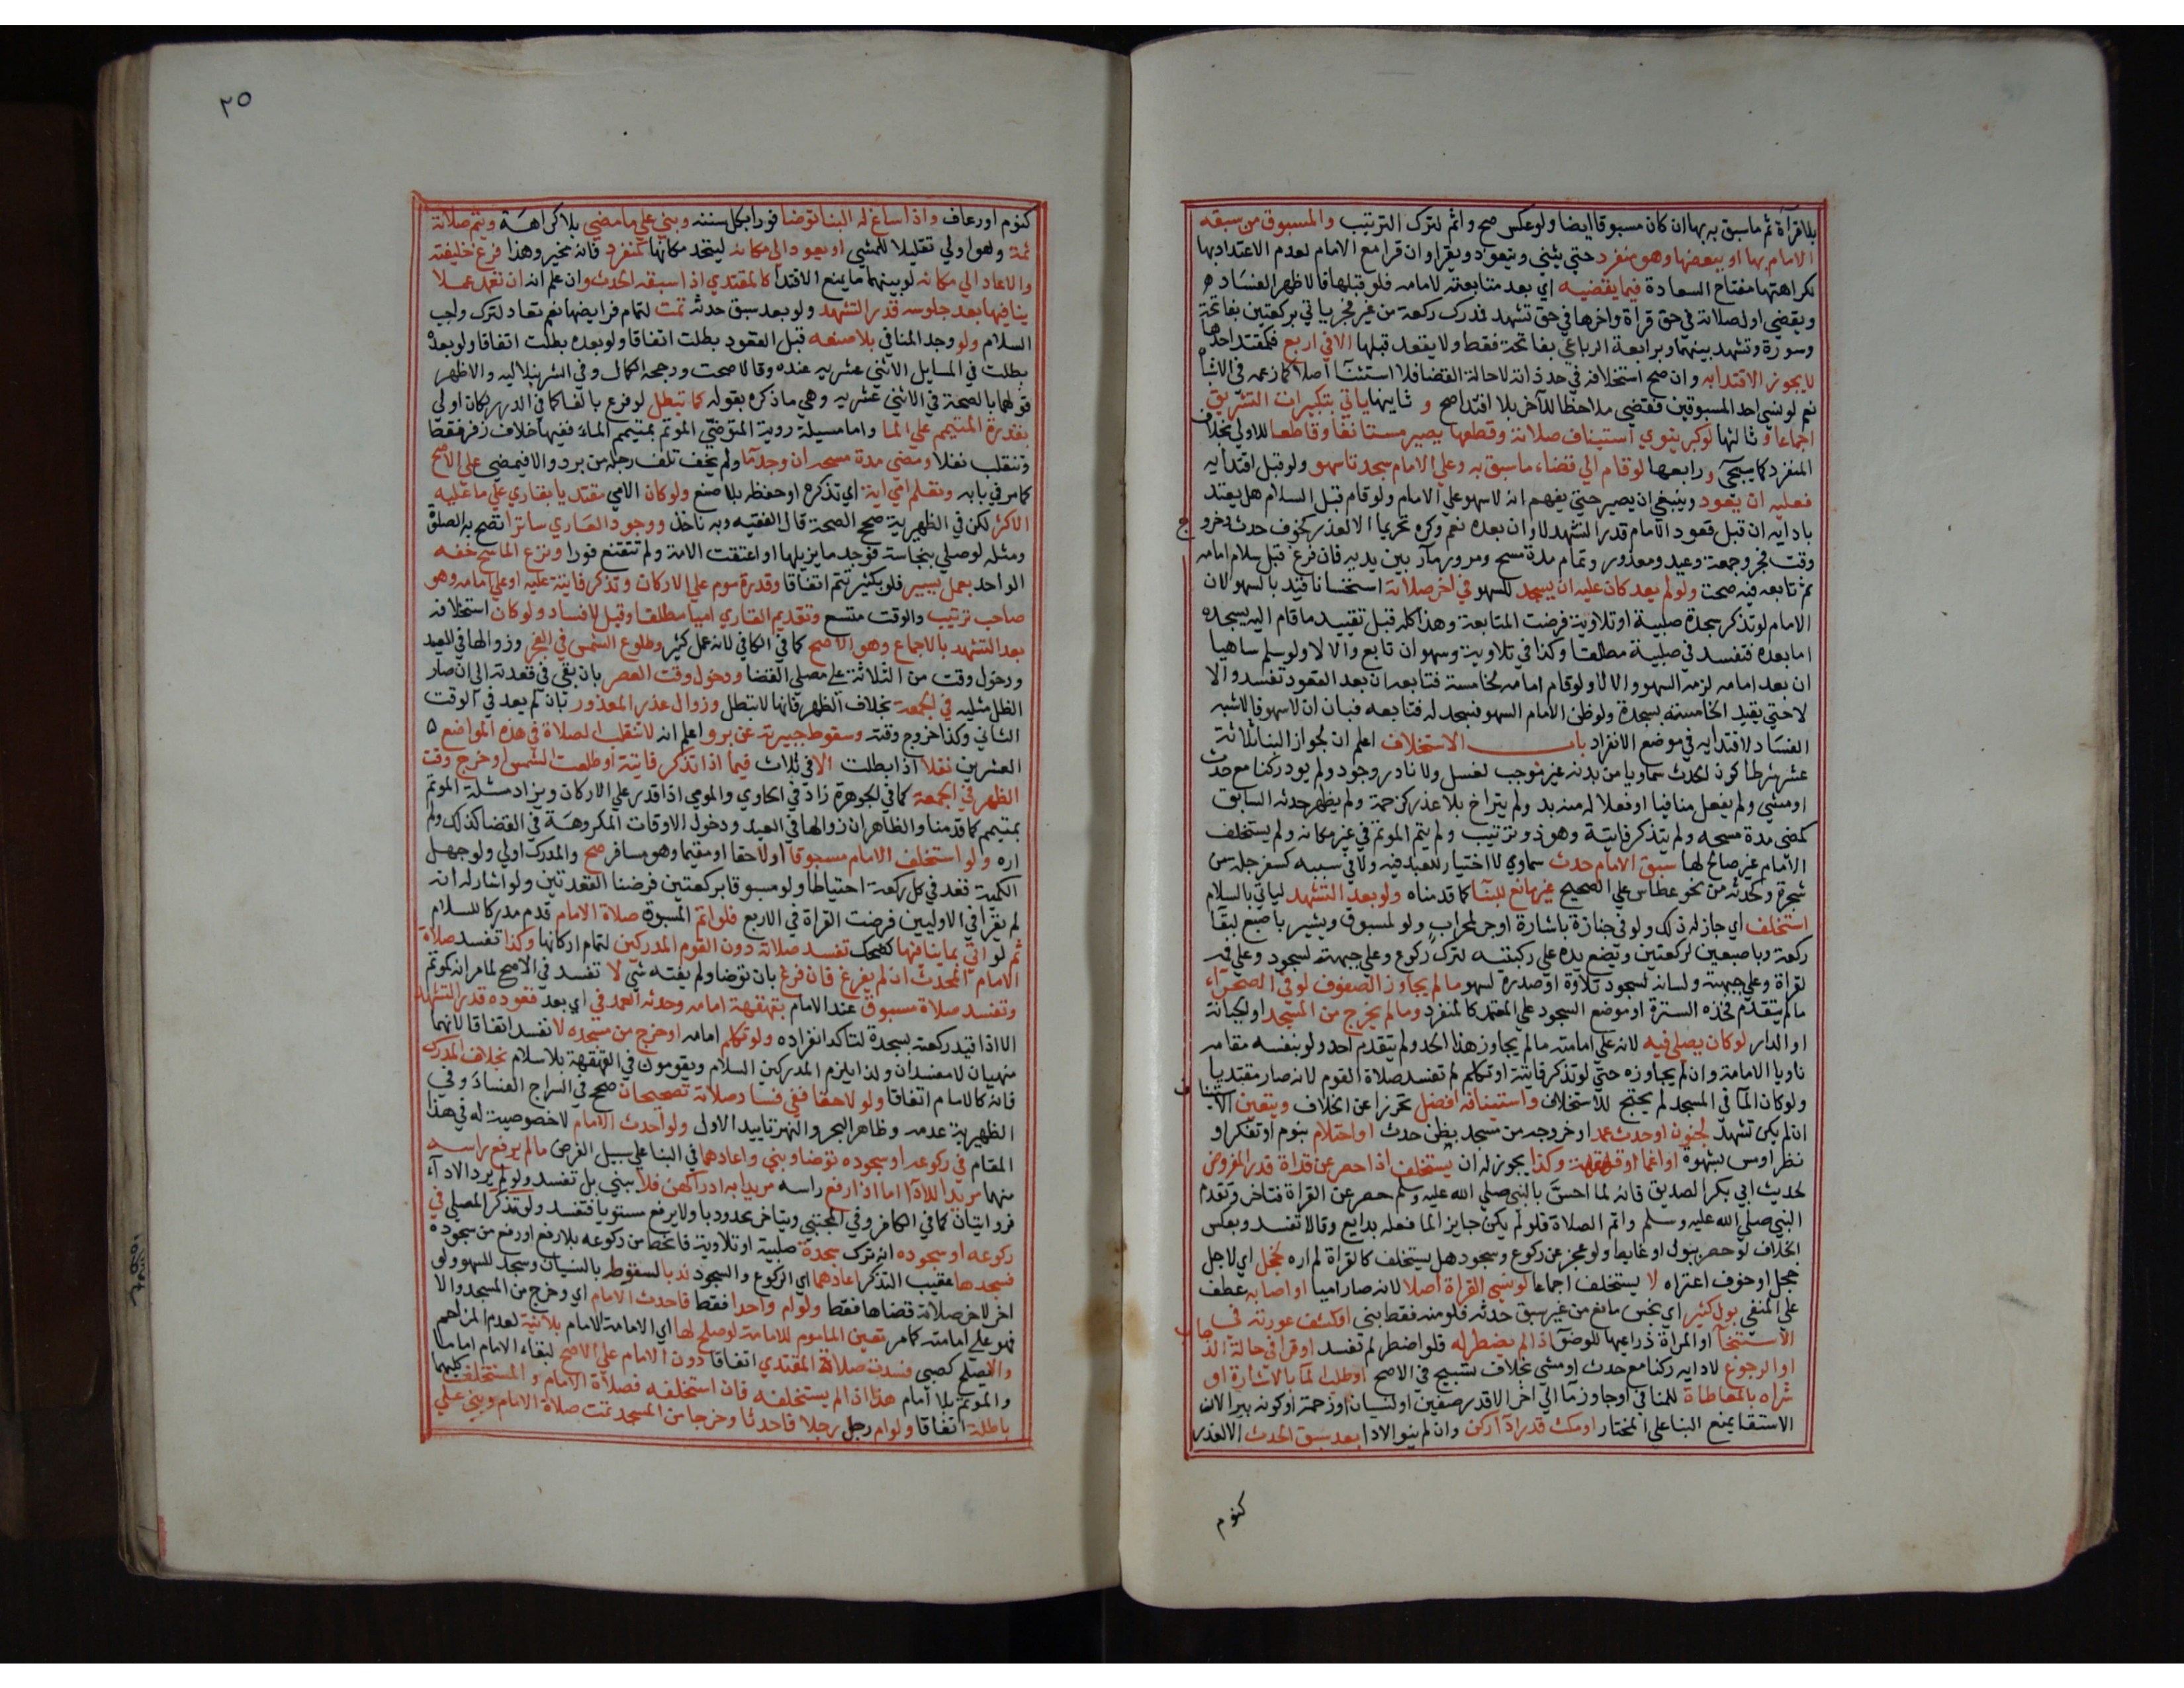 بلا قرآة ثم ما سبق به بها ان كان مسبوقا ايضا ولو عكس صح واثم لترك الترتيب والمسبوق من سبقه
الامام بها او ببعضها وهو منفرد حتى يثني ويتعوذ ويقرا وان قرا مع الامام لعدم الاعتداد بها
لكراهتها مفتاح السعادة فيما يقضيه اي بعد متابعته لامامه فلو قبلها فالاظهر الفساد
ويقضي اول صلاته في حق قراة واخرها في حق تشهد فمدرك ركعة من غير فجر ياتي بركعتين بفاتحة
وسورة وتشهد بينهما وبرابعة الرباعي بفاتحة فقط ولا يقعد قبلها الا في اربع فكمقتد احدها
لا يجوز الاقتدا به وان صح استخلافه في حد ذاته لا حالة القضا فلا استثنآ اصلا كما زعمه في الاشباه
نعم لو نسي احد المسبوقين فقضى ملاحظا للآخر بلا اقتدا صح و ثانيها ياتي بتكبيرات التشريق
اجماعا و ثالثها لو كبر ينوي استيناف صلاته وقطعها يصير مستانفا وقاطعا للاولى بخلاف
المنفرد كما سيجي و رابعها لو قام الى قضاء ما سبق به وعلى الامام سجدتا سهو ولو قبل اقتدايه
فعليه ان يعود وينبغي ان يصبر حتى يفهم انه لا سهو على الامام ولو قام قبل السلام هل يعتد
بادايه ان قبل قعود الامام قدر التشهد لا وان بعده نعم وكره تحريما الا لعذر كخوف حدث وخروج
وقت فجر وجمعة وعيد ومعذور وتمام مدة مسح ومرور مار بين يديه فان فرغ قبل سلام امامه
ثم تابعه فيه صحت ولو لم يعد كان عليه ان يسجد للسهو في اخر صلاته استحسانا قيد بالسهو لان
الامام لو تذكر سجدة صلبية او تلاوية فرضت المتابعة وهذا كله قبل تقييد ما قام اليه بسجدة
اما بعده فتفسد في صلبية مطلقا وكذا في تلاوية وسهو ان تابع والا لا ولو سلم ساهيا
ان بعد امامه لزمه السهو والا لا ولو قام امامه لخامسة فتابعه ان بعد القعود تفسد والا
لا حتى يقيد الخامسة بسجدة ولو ظن الامام السهو فسجد له فتابعه فبان ان لا سهو فالاشبه
الفساد لاقتدايه في موضع الانفراد باب الاستخلاف اعلم ان لجواز البنا ثلاثة
عشر شرطا كون الحدث سماويا من بدنه غير موجب لغسل ولا نادر وجود ولم يود ركنا مع حدث
او مشي ولم يفعل منافيا او فعلا له منه بد ولم يتراخ بلا عذر كزحمة ولم يظهر حدثه السابق
كمضي مدة مسحه ولم يتذكر فايتة وهو ذو ترتيب ولم يتم الموتم في غير مكانه ولم يستخلف
الامام غير صالح لها سبق الامام حدث سماوي لا اختيار للعبد فيه ولا في سببه كسفرجلة من
شجرة وكحدثه من نحو عطاس على الصحيح غير مانع للبنآ كما قدمناه ولو بعد التشهد لياتي بالسلام
استخلف اي جاز له ذلك ولو في جنازة باشارة او جر لمحراب ولو لمسبوق ويشير باصبع لبقا
ركعة وباصبعين لركعتين ويضع يده على ركبته لترك ركوع وعلى جبهته لسجود وعلى فمه
لقراة وعلى جبهته ولسانه لسجود تلاوة او صدره لسهو ما لم يجاوز الصفوف لو في الصحرآء
ما لم يتقدم فحده السترة او موضع السجود على المعتمد كالمنفرد وما لم يخرج من المسجد او الجبانة
او الدار لو كان يصلي فيه لانه على امامته ما لم يجاوز هذا الحد ولم يتقدم احد ولو بنفسه مقامه
ناويا الامامة وان لم يجاوزه حتى لو تذكر فايتة او تكلم لم تفسد صلاة القوم لانه صار مقتديا
ولو كان المآ في المسجد لم يحتج للاستخلاف واستينافه افضل تحرزا عن الخلاف ويتعين الاستيناف
ان لم يكن تشهد لجنون او حدث عمدا او خروجه من مسجد بظن حدث او احتلام بنوم او تفكر او
نظر او مس بشهوة او اغما او قهقهة وكذا يجوز له ان يستخلف اذا حصر عن قراة قدر المفروض
لحديث ابي بكر الصديق فانه لما احس بالنبي صلى الله عليه وسلم حصر عن القراة فتاخر وتقدم
النبي صلى الله عليه وسلم واتم الصلاة فلو لم يكن جايزا لما فعله بدايع وقالا تفسد وبعكس
الخلاف لو حصر ببول او غايط ولو عجز عن ركوع وسجود هل يستخلف كالقراة لم اره لخجل اي لاجل
خجل او خوف اعتراه لا يستخلف اجماعا لو نسي القراة اصلا لانه صار اميا او اصابه عطف
على المنفي بول كثير اي نجس مانع من غير سبق حدثه فلو منه فقط بنى او كشف عورته في
الاستنجآ او المراة ذراعيها للوضو اذا لم يضطر له فلو اضطر لم تفسد او قرا في حالة الذهاب
او الرجوع لادايه ركنا مع حدث او مشي بخلاف تسبيح في الاصح او طلب الما بالاشارة او
شراه بالمعاطاة للمنافي او جاوز مآ الى اخر الا قدر صفين او لنسيان او زحمة او كونه بيرا لان
الاستقا يمنع البنا على المختار او مكث قدر ادآ ركن وان لم ينو الادا بعد سبق الحدث الا لعذر
كنوم
٢٥
كنوم او رعاف واذا ساغ له البنا توضا فورا بكل سننه وبنى على ما مضى بلا كراهة ويتم صلاته
ثمة وهو اولى تقليلا للمشي او يعود الى مكانه ليتحد مكانها كمنفرد فانه مخير وهذا ان فرغ خليفته
والا عاد الى مكانه لو بينهما ما يمنع الاقتدا كالمقتدي اذا سبقه الحدث واعلم انه ان تعمد عملا
ينافيها بعد جلوسه قدر التشهد ولو بعد سبق حدثه تمت لتمام فرايضها نعم تعاد لترك واجب
السلام ولو وجد المنافي بلا صنعه قبل القعود بطلت اتفاقا ولو بعده بطلت اتفاقا ولو بعده
بطلت في المسايل الاثني عشرية عنده وقالا صحت ورجحه الكمال وفي الشرنبلالية والاظهر
قولهما بالصحة في الاثني عشرية وهي ما ذكره بقوله كما تبطل لو فرع بالفا كما في الدرر لكان اولى
بقدرة المتيمم على الما واما مسيلة روية المتوضئ الموتم بمتيمم الماء ففيها خلاف زفر فقط
وتنقلب نفلا ومضي مدة مسحه ان وجد ما ولم يخف تلف رجله من برد والا فيمضي على الاصح
كما مر في بابه وتعلم امي اية اي تذكره او حفظه بلا صنع ولو كان الامي مقتديا بقاري على ما عليه
الاكثر لكن في الظهيرية صحح الصحة قال الفقيه وبه ناخذ ووجود العاري ساترا تصح به الصلوة
ومثله لو صلى بنجاسة فوجد ما يزيلها او اعتقت الامة ولم تتقنع فورا ونزع الماسح خفه
الواحد بعمل يسير فلو بكثير تتم اتفاقا وقدرة موم على الاركان وتذكر فايتة عليه او على امامه وهو
صاحب ترتيب والوقت متسع وتقديم القاري اميا مطلقا وقيل لا فساد ولو كان استخلافه
بعد التشهد بالاجماع وهو الاصح كما في الكافي لانه عمل كثير وطلوع الشمس في الفجر وزوالها في العيد
ودخول وقت من الثلاثة على مصلي القضا ودخول وقت العصر بان بقي في قعدته الى ان صار
الظل مثليه في الجمعة بخلاف الظهر فانها لا تبطل وزوال عذر المعذور بان لم يعد في الوقت
الثاني وكذا خروج وقته وسقوط جبيرته عن برو واعلم انه لا تنقلب الصلاة في هذه المواضع
العشرين نفلا اذا بطلت الا في ثلاث فيما اذا تذكر فايتة او طلعت الشمس او خرج وقت
الظهر في الجمعة كما في الجوهرة زاد في الحاوي والمومي اذا قدر على الاركان ويزاد مسئلة الموتم
بمتيمم كما قدمنا والظاهر ان زوالها في العيد ودخول الاوقات المكروهة في القضا كذلك ولم
اره ولو استخلف الامام مسبوقا او لاحقا او مقيما وهو مسافر صح والمدرك اولى ولو جهل
الكمية قعد في كل ركعة احتياطا ولو مسبوقا بركعتين فرضنا القعدتين ولو اشار له انه
لم يقرا في الاوليين فرضت القراة في الاربع فلو اتم المسبوق صلاة الامام قدم مدركا للسلام
ثم لو اتى بما ينافيها كضحك تفسد صلاته دون القوم المدركين لتمام اركانها وكذا تفسد صلاة
الامام المحدث ان لم يفرغ فان فرغ بان توضا ولم يفته شي لا تفسد في الاصح لما مر انه كموتم
وتفسد صلاة مسبوق عند الامام بقهقهة امامه وحدثه العمد في اي بعد قعوده قدر التشهد
الا اذا قيد ركعته بسجدة لتاكد انفراده ولو تكلم امامه او خرج من مسجده لا تفسد اتفاقا لانهما
منهيان لا مفسدان ولذا يلزم المدركين السلام ويقومون في القهقهة بلا سلام بخلاف المدرك
فانه كالامام اتفاقا ولو لاحقا ففي فساد صلاته تصحيحان صحح في السراج الفساد وفي
الظهيرية عدمه وظاهر البحر والنهر تاييد الاول ولو احدث الامام لا خصوصية له في هذا
المقام في ركوعه او سجوده توضا وبنى واعادهما في البنا على سبيل الفرض ما لم يرفع راسه
منهما مريدا للادآ اما اذا رفع راسه مريدا به ادا ركن فلا يبني بل تفسد ولو لم يرد الادآء
فروايتان كما في الكافي وفي المجتبى ويتاخر محدودبا ولا يرفع مستويا فتفسد ولو تذكر المصلي في
ركوعه او سجوده انه ترك سجدة صلبية او تلاوية فانحط من ركوعه بلا رفع او رفع من سجوده
فسجدها عقيب التذكر اعادهما اي الركوع والسجود ندبا لسقوط بالنسيان وسجد للسهو ولو
اخر لاخر صلاته قضاها فقط ولو ام واحدا فقط فاحدث الامام اي وخرج من المسجد والا
فهو على امامته كما مر تعين الماموم للامامة لو صلح لها اي لامامة الامام بلا نية لعدم المزاحم
والا يصلح كصبي فسدت صلاة المقتدي اتفاقا دون الامام على الاصح لبقاء الامام اماما
والموتم بلا امام هذا اذا لم يستخلفه فان استخلفه فصلاة الامام والمستخلف كليهما
باطلة اتفاقا ولو ام رجل رجلا فاحدثا وخرجا من المسجد تمت صلاة الامام وبنى على